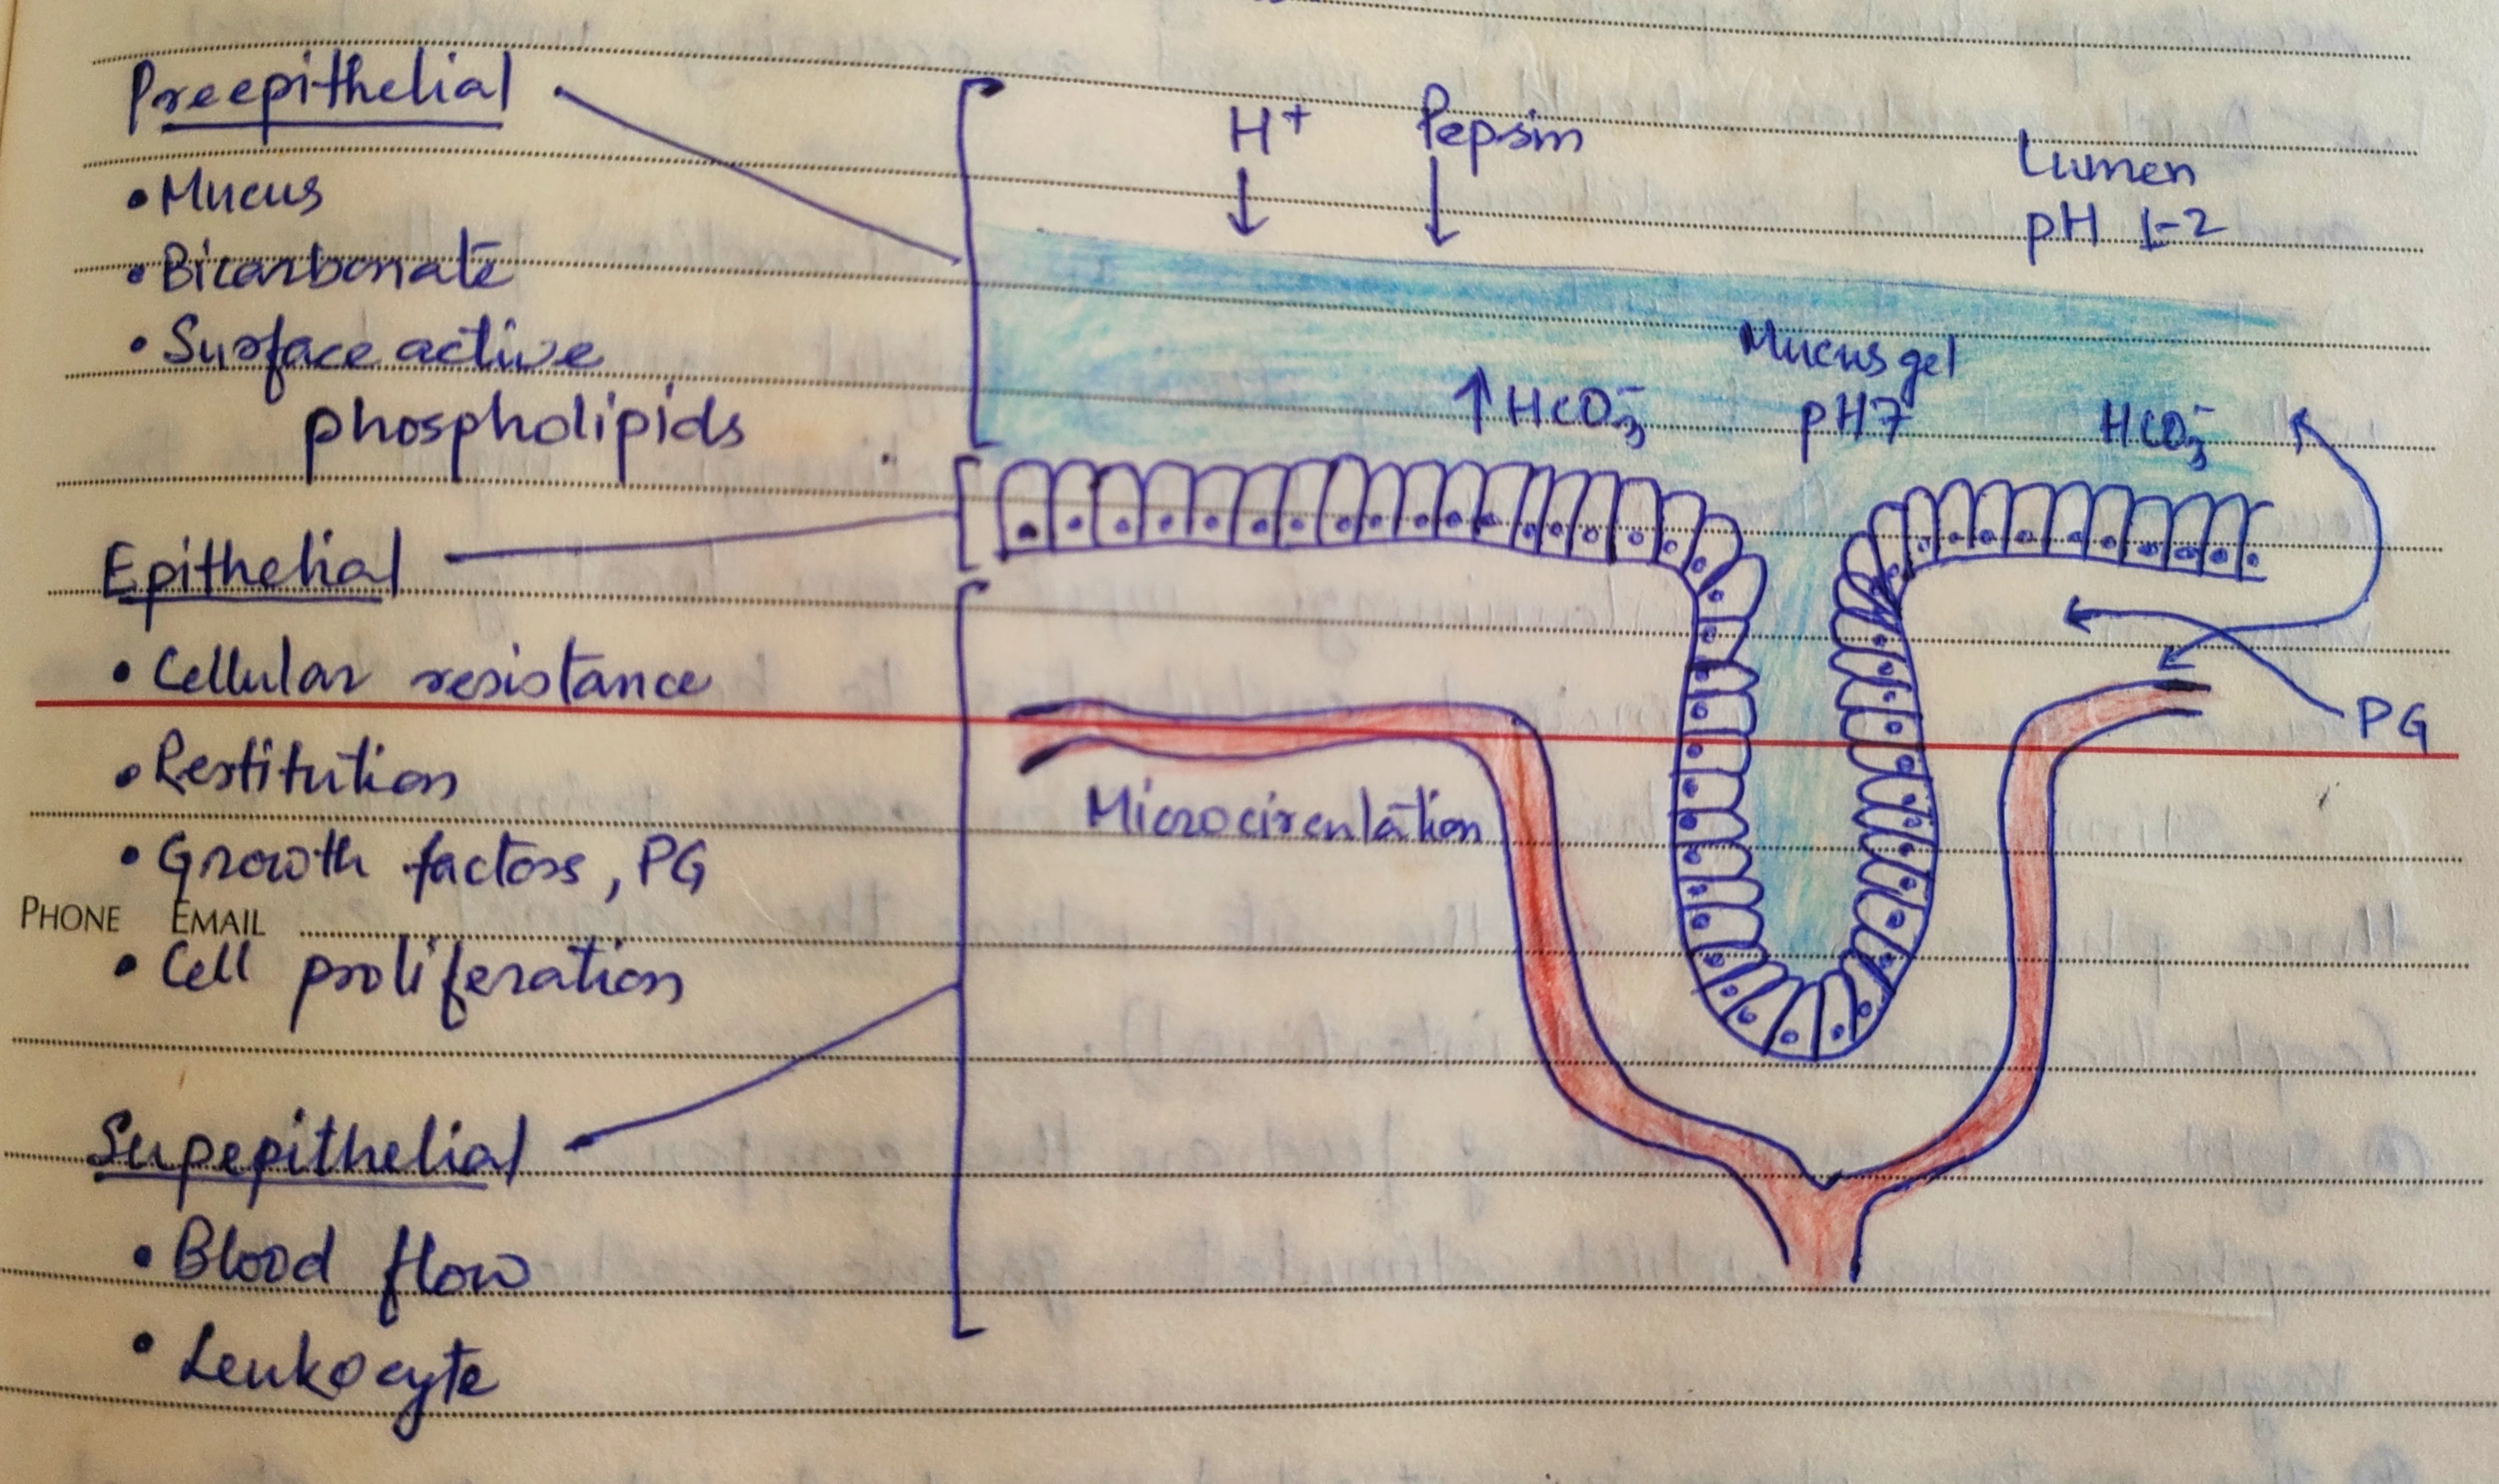 Preepithelial
• Mucus
• Bicarbonate
• Surface active
phospholipids
Epithelial
• Cellular resistance
• Restitution
• Growth factors, PG
PHONE EMAIL
• Cell proliferation
Supepithelial
• Blood flow
• Leukocyte
H+ Pepsin
Lumen
pH 1-2
Mucus gel
pH7
↑HCO3-
HCO3-
PG
Microcirculation